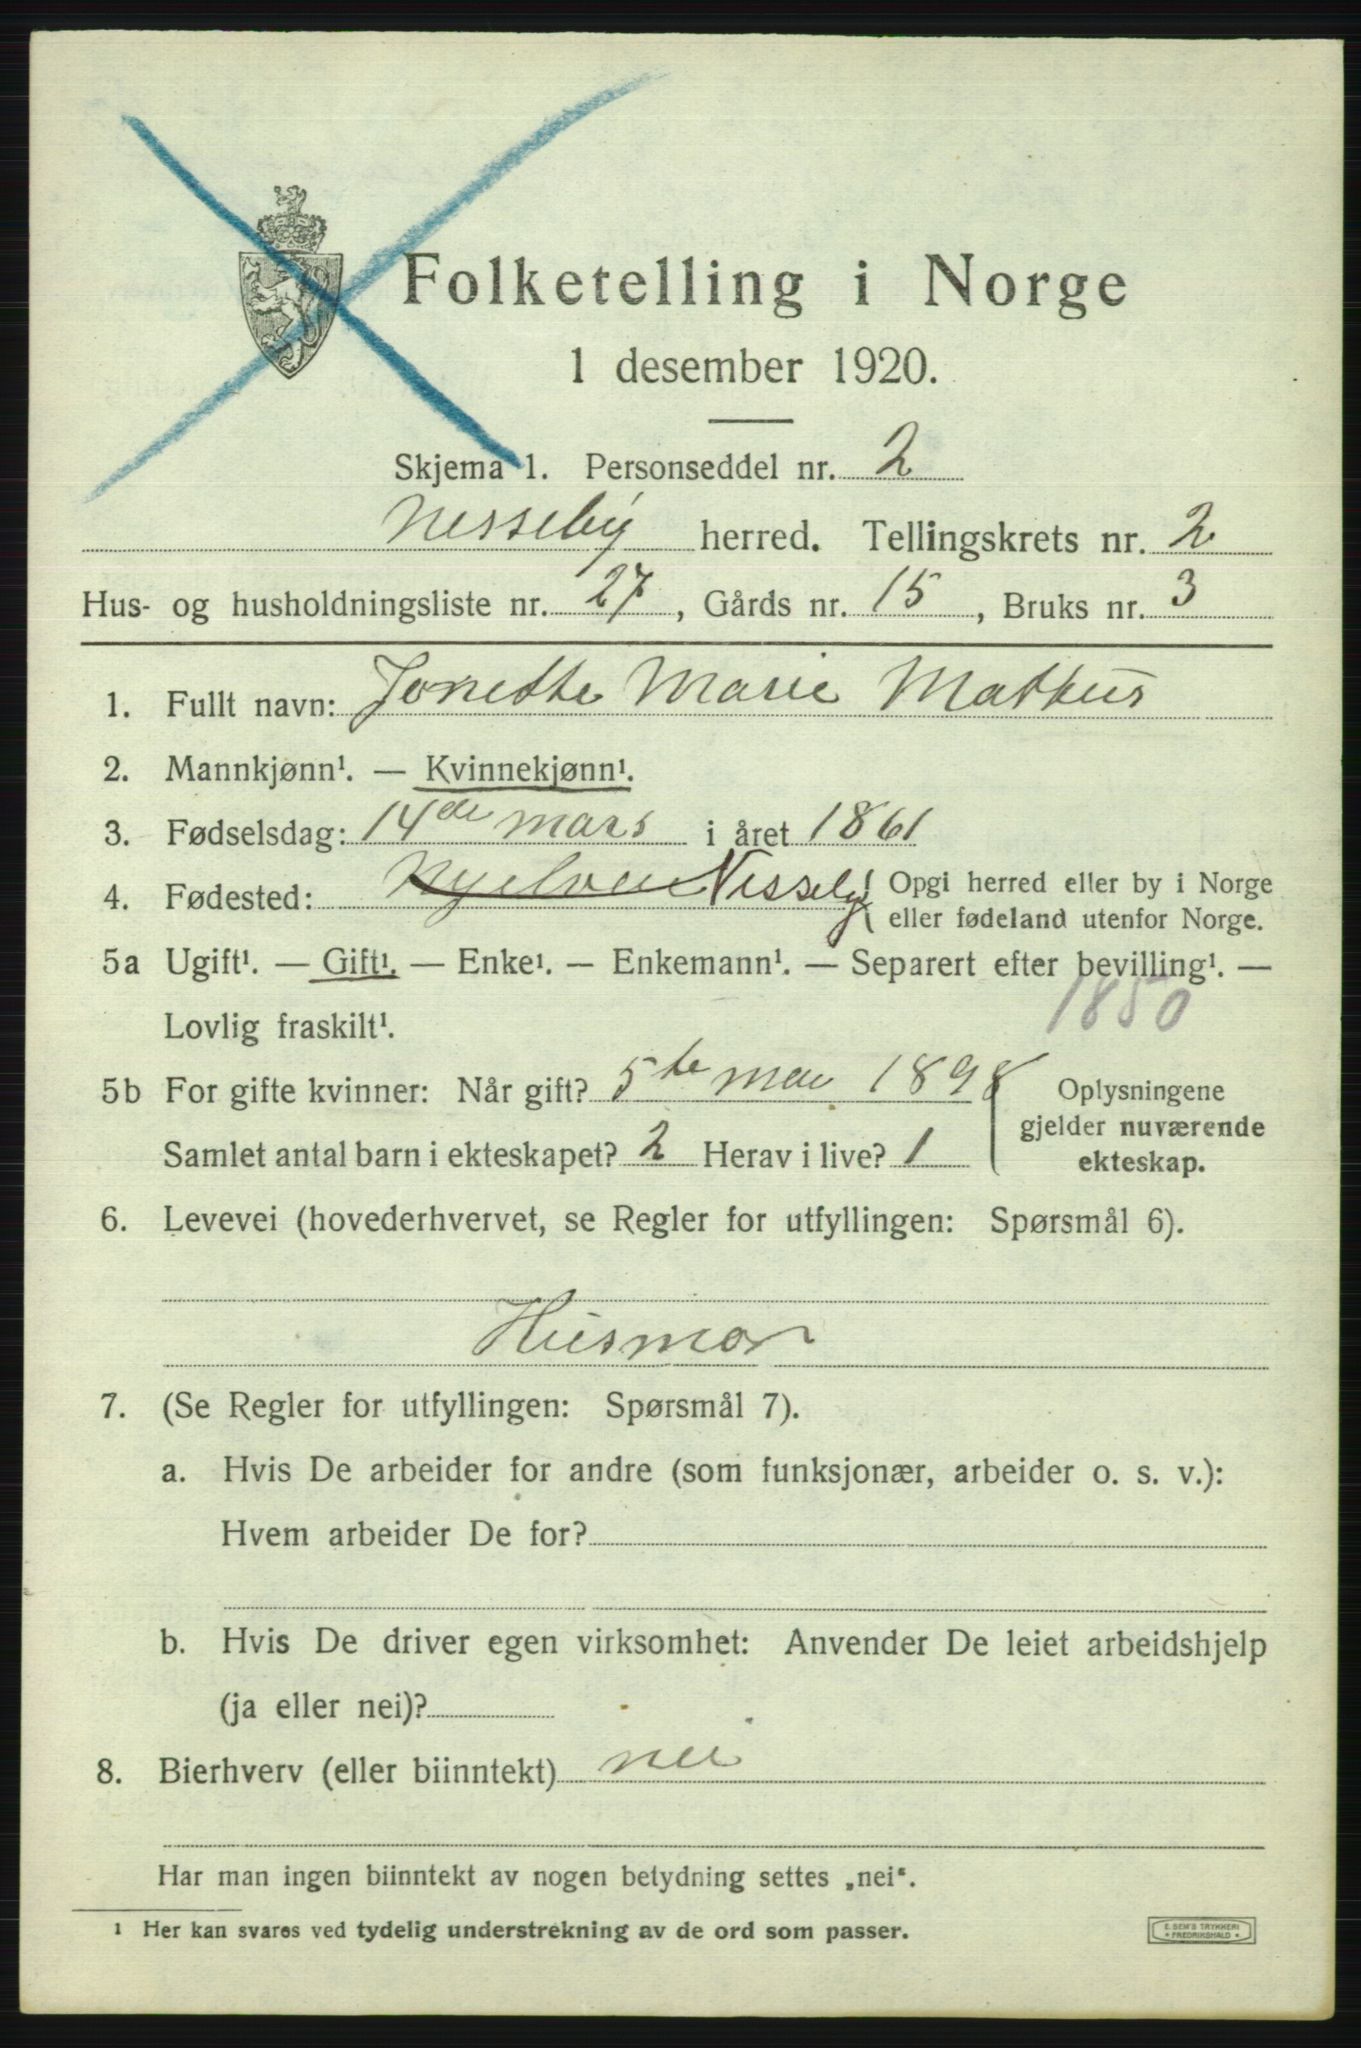 Folketelling i Norge
1 desember 1920.
Skjema 1. Personseddel nr. 2
Nesseby herred. Tellingskrets nr. 2
Hus- og husholdningsliste nr. 27, Gårds nr. 15, Bruks nr. 3
1. Fullt navn: Jonette Marie Mathus
2. Mannkjønn¹. — Kvinnekjønn¹.
3. Fødselsdag: 14de mars i året 1861
4. Fødested: Nyelven Nesseby { Opgi herred eller by i Norge
eller fødeland utenfor Norge.
5a Ugift¹. — Gift¹. — Enke¹. — Enkemann¹. — Separert efter bevilling¹. —
Lovlig fraskilt¹.
1850
5b For gifte kvinner: Når gift? 5te mai 1898
Samlet antal barn i ekteskapet? 2 Herav i live? 1
Oplysningene
gjelder nuværende
ekteskap.
6. Levevei (hovederhvervet, se Regler for utfyllingen: Spørsmål 6).
Husmor
7. (Se Regler for utfyllingen: Spørsmål 7).
a. Hvis De arbeider for andre (som funksjonær, arbeider o. s. v.):
Hvem arbeider De for?
b. Hvis De driver egen virksomhet: Anvender De leiet arbeidshjelp
(ja eller nei)?
8. Bierhverv (eller biinntekt) nei
Har man ingen biinntekt av nogen betydning settes „nei“.
¹ Her kan svares ved tydelig understrekning av de ord som passer.
E. SEM'S TRYKKERI
* FREDRIKSHALD *